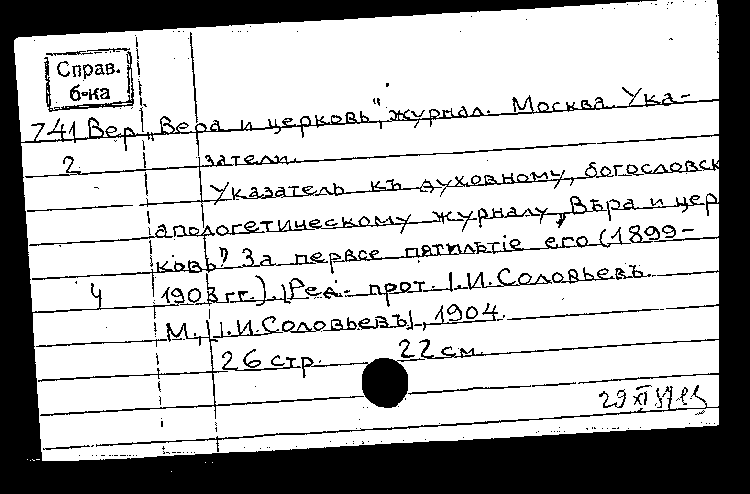 Справ.
б-ка
741 Вер „Вера и церковь", журнал. Москва. Ука-
2 затели.
Указатель къ духовному, богословск
апологетическому журналу „Вѣра и цер
ковь" За первое пятилѣтіе его (1899-
4 1903 гг.). |Ред.- прот. І.И.Соловьевъ.
М., |І.И.Соловьевъ|, 1904.
26 стр. 22 см.
29 XI